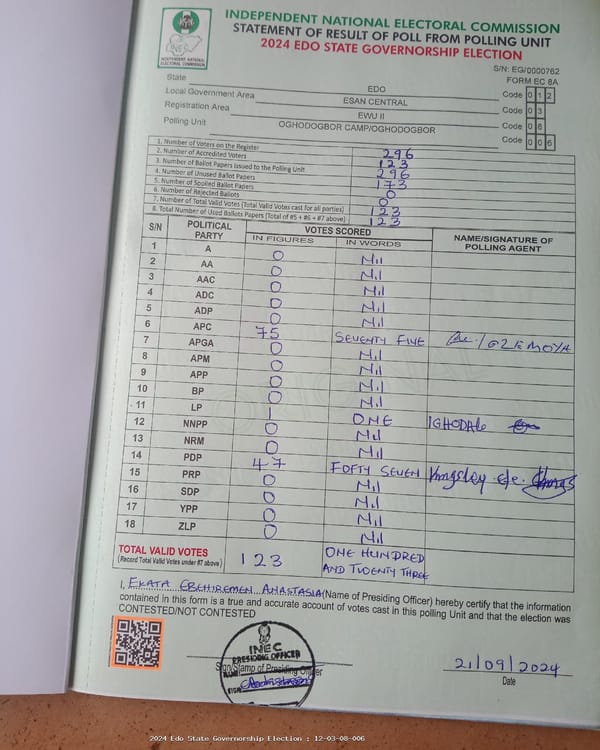 INDEPENDENT NATIONAL ELECTORAL COMMISSION
STATEMENT OF RESULT OF POLL FROM POLLING UNIT
2024 EDO STATE GOVERNORSHIP ELECTION
INEC
INDEPENDENT NATIONAL ELECTORAL COMMISSION
S/N: EG/0000762
FORM EC 8A
State EDO Code 0 1 2
Local Government Area ESAN CENTRAL Code 0 3
Registration Area EWU II Code 0 8
Polling Unit OGHODOGBOR CAMP/OGHODOGBOR Code 0 0 6
1. Number of Voters on the Register 296
2. Number of Accredited Voters 123
3. Number of Ballot Papers Issued to the Polling Unit 296
4. Number of Unused Ballot Papers 173
5. Number of Spoiled Ballot Papers 0
6. Number of Rejected Ballots 0
7. Number of Total Valid Votes (Total Valid Votes cast for all parties) 123
8. Total Number of Used Ballots Papers (Total of #5 + #6 + #7 above) 123
S/N POLITICAL PARTY VOTES SCORED NAME/SIGNATURE OF POLLING AGENT
IN FIGURES IN WORDS
1 A 0 Nil
2 AA 0 Nil
3 AAC 0 Nil
4 ADC 0 Nil
5 ADP 0 Nil
6 APC 75 SEVENTY FIVE
7 APGA 0 Nil
8 APM 0 Nil
9 APP 0 Nil
10 BP 0 Nil
11 LP 1 ONE IGHODALO
12 NNPP 0 Nil
13 NRM 0 Nil
14 PDP 47 FOFTY SEVEN Kingsley
15 PRP 0 Nil
16 SDP 0 Nil
17 YPP 0 Nil
18 ZLP 0 Nil
TOTAL VALID VOTES 123 ONE HUNDRED
(Record Total Valid Votes under #7 above) AND TWENTY THREE
I, EKATA EBEHIREMEN ANASTASIA (Name of Presiding Officer) hereby certify that the information
contained in this form is a true and accurate account of votes cast in this polling Unit and that the election was
CONTESTED/NOT CONTESTED
INEC
PRESIDING OFFICER
Sign/Stamp of Presiding Officer
SIGN
21/09/2024
Date
2024 Edo State Governorship Election : 12-03-08-006